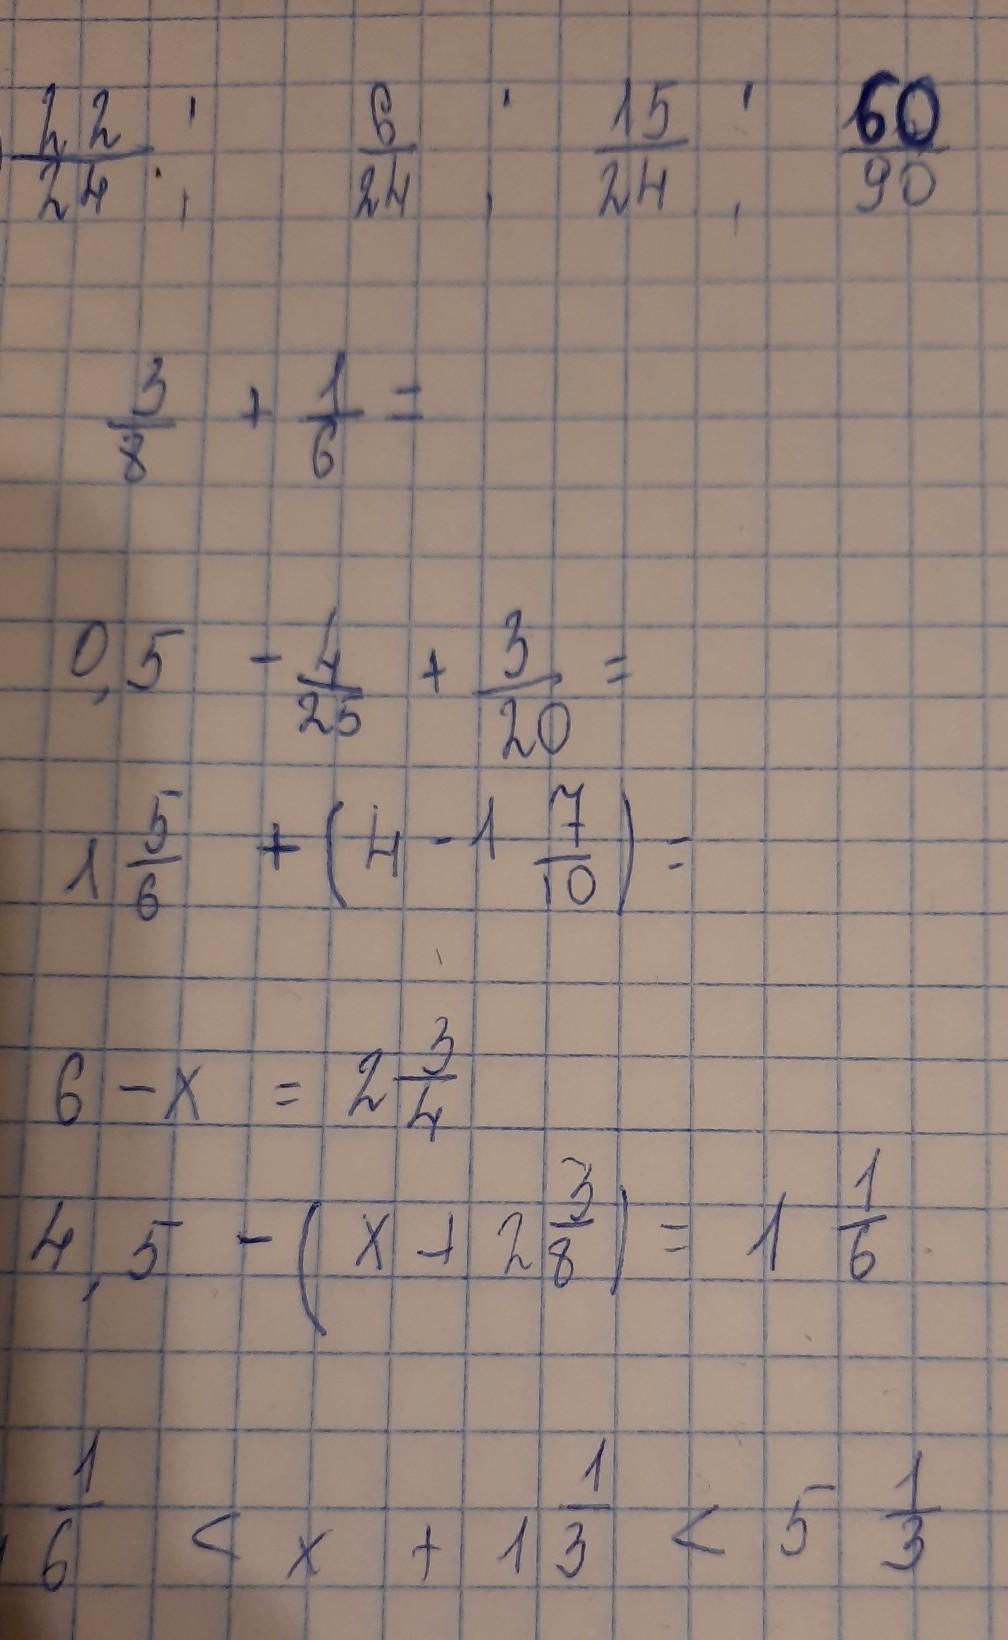 22/24 ; 6/24 ; 15/24 ; 60/90
3/8 + 1/6 =
0,5 - 4/25 + 3/20 =
1 5/6 + (4 - 1 7/10) =
6 - x = 2 3/4
4,5 - (x + 2 3/8) = 1 1/6
1/6 < x + 1 1/3 < 5 1/3